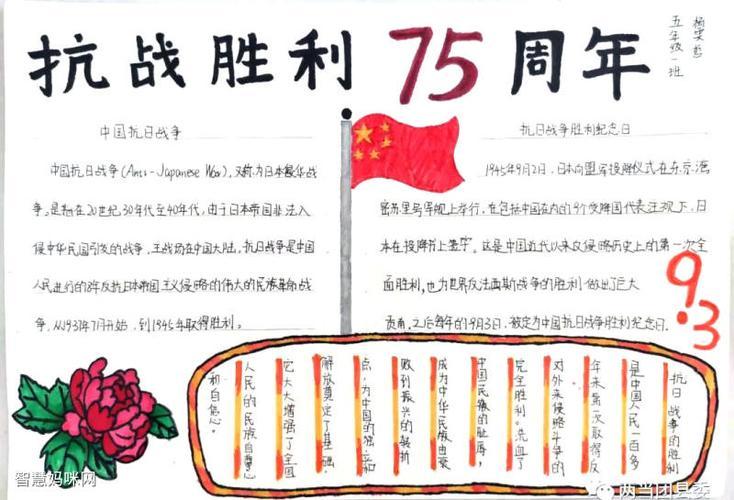 抗战胜利75周年
五年级一班
中国抗日战争
中国抗日战争(Anti-Japanese War),又称为日本侵华战
争。是指在20世纪30年代至40年代,由于日本帝国非法入
侵中华民国引发的战争,主战场在中国大陆。抗日战争是中国
人民进行的8年反抗日本帝国主义侵略的伟大的民族革命战
争,从1937年7月开始,到1945年取得胜利。
抗日战争胜利纪念日
1945年9月2日,日本向盟军投降仪式在东京湾
密苏里号军舰上举行,在包括中国在内的9个受降国代表注视下,日
本在投降书上签字。这是中国近代以来反侵略历史上的第一次全
面胜利,也为世界反法西斯战争的胜利做出了巨大
贡献,之后每年的9月3日,被定为中国抗日战争胜利纪念日.
9.3
抗日战争的胜利
是中国人民一百多
年来第一次取得反
对外来侵略斗争的
完全胜利。洗血了
中国民族的耻辱,
成为中华民族由衰
败到振兴的转折
点,为中国的独立和
解放奠定了基础,
它大大增强了全国
人民的民族自尊心
和自信心。
智慧妈咪网
两当团县委